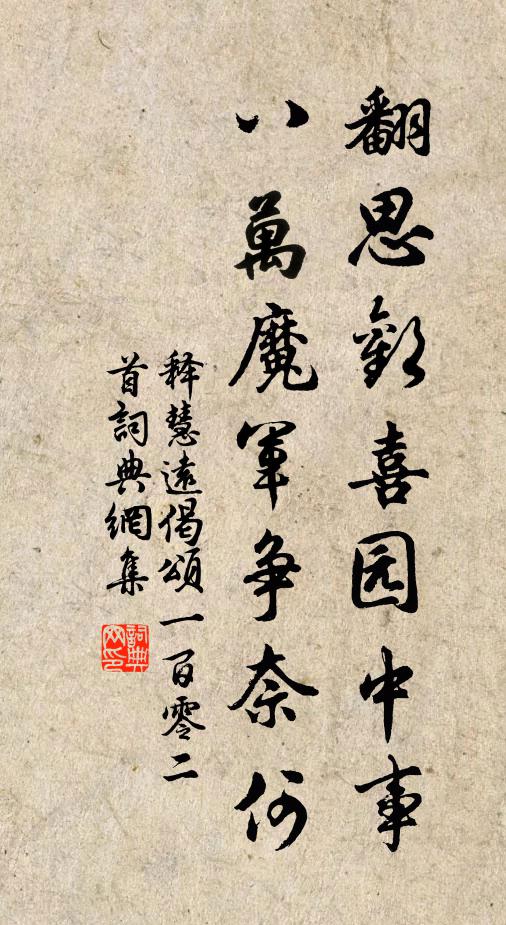 翻思歡喜园中事
八萬魔軍争奈何
释慧遠偈頌一百零二
首詞典網集
詞典网印